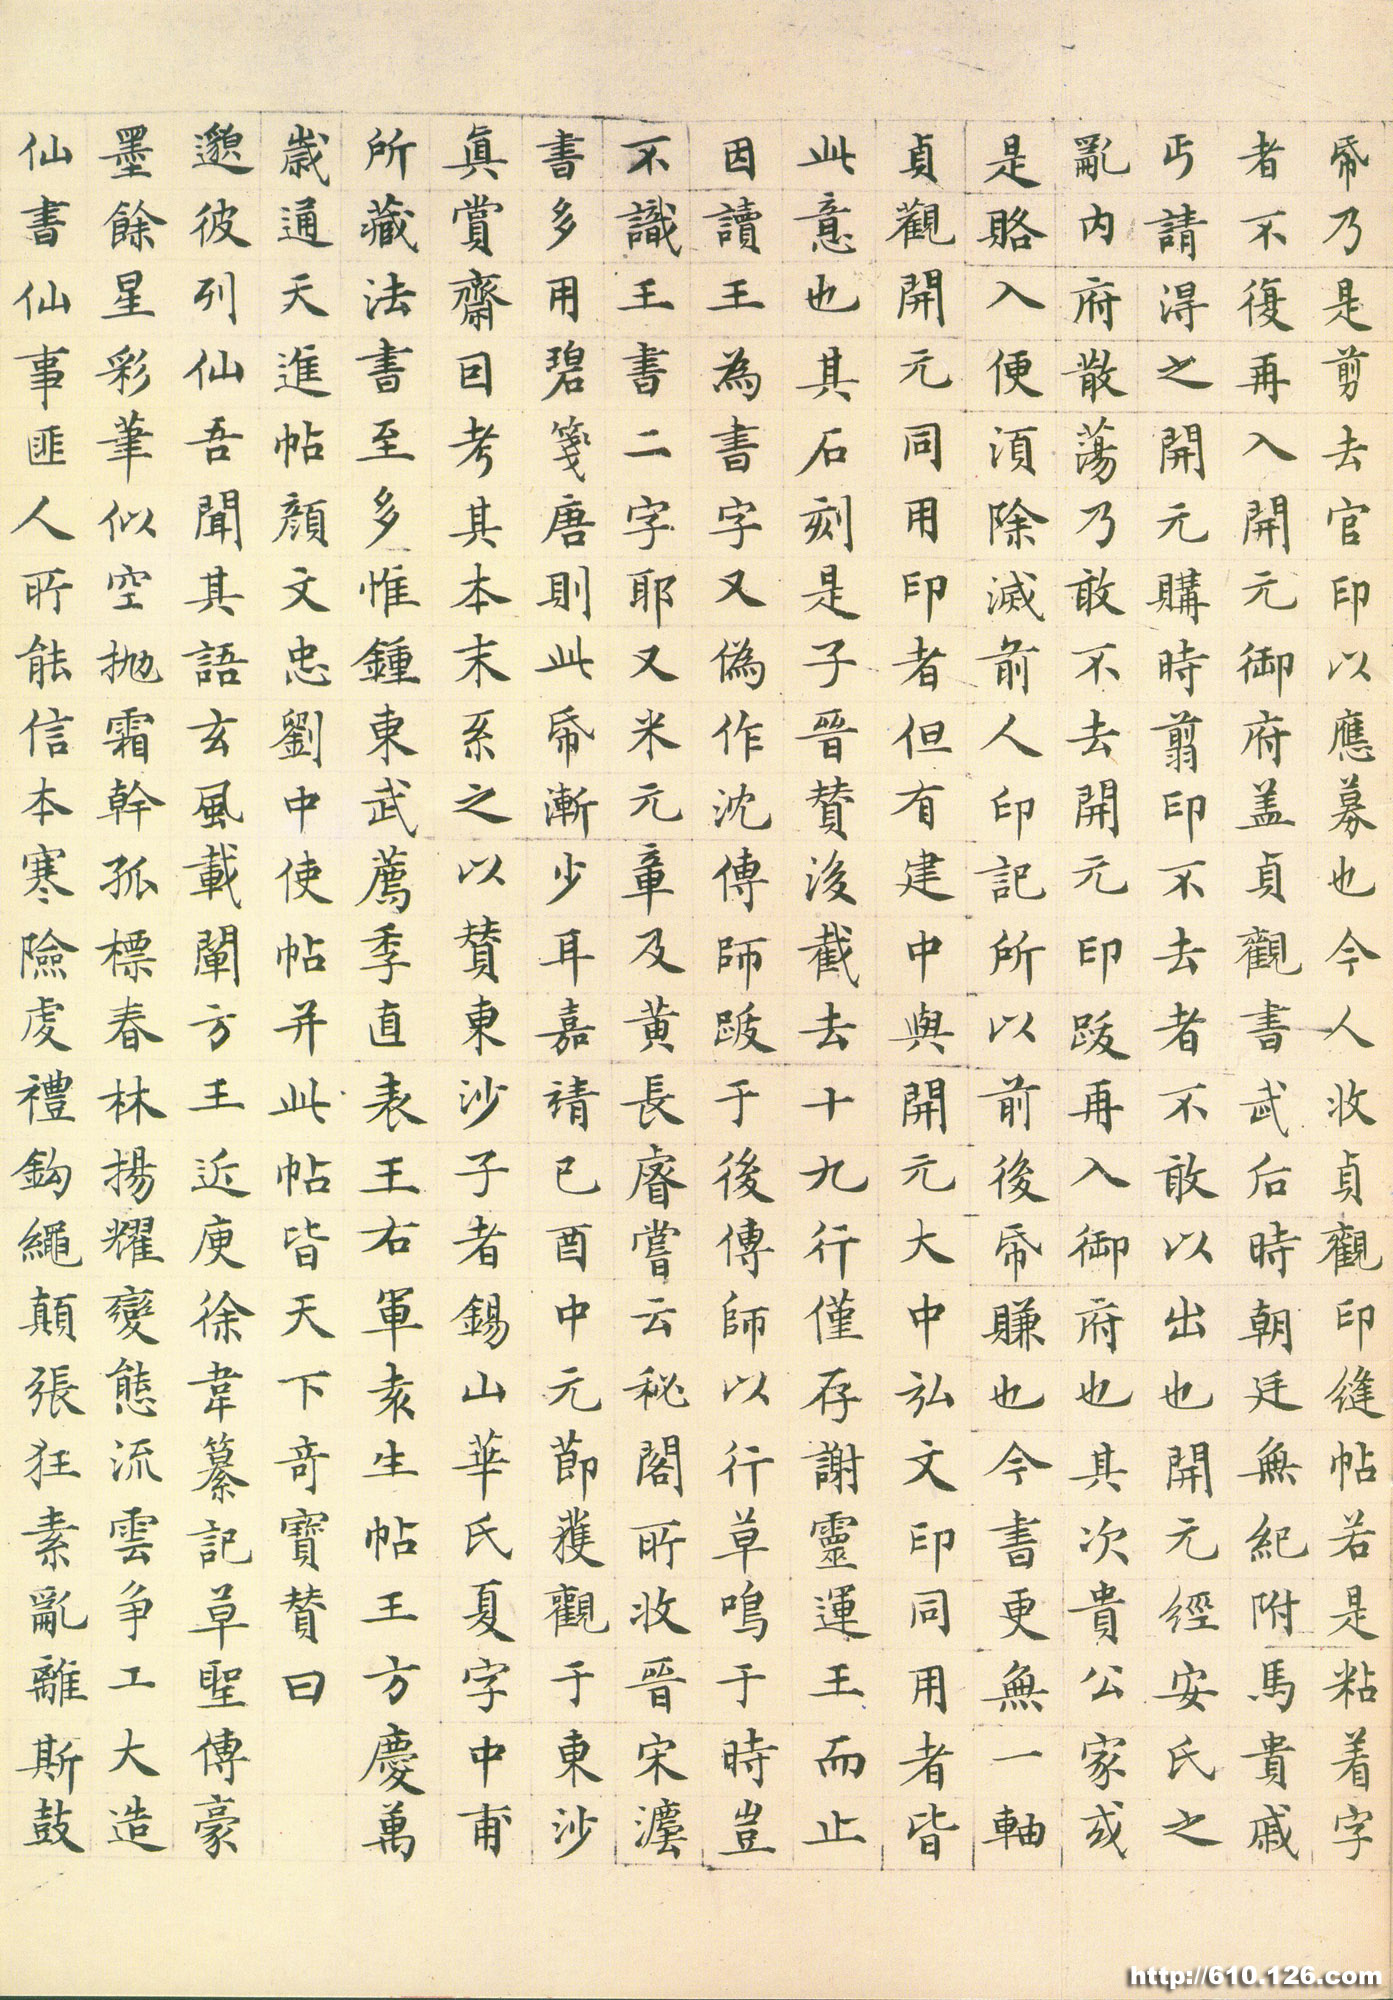 帋乃是剪去官印以應募也今人收貞觀印縫帖若是粘着字
者不復再入開元御府盖貞觀書武后時朝廷無紀附馬貴戚
丐請得之開元購時翦印不去者不敢以出也開元經安氏之
亂内府散蕩乃敢不去開元印跋再入御府也其次貴公家或
是賂入便須除滅前人印記所以前後帋賺也今書更無一軸
貞觀開元同用印者但有建中與開元大中弘文印同用者皆
此意也其石刻是子晉贊後截去十九行僅存謝靈運王而止
因讀王為書字又偽作沈傳師跋于後傳師以行草鳴于時豈
不識王書二字耶又米元章及黄長睿嘗云秘閣所收晉宋灋
書多用碧箋唐則此帋漸少耳嘉靖己酉中元節獲觀于東沙
真賞齋因考其本末系之以贊東沙子者錫山華氏夏字中甫
所藏法書至多惟鍾東武薦季直表王右軍袁生帖王方慶萬
歲通天進帖顏文忠劉中使帖并此帖皆天下奇寶贊曰
邈彼列仙吾聞其語玄風載闡方王近庾徐韋纂記草聖傳豪
墨餘星彩筆似空拋霜幹孤標春林揚耀變態流雲争工大造
仙書仙事匪人所能信本寒險虔禮鈎繩顛張狂素亂離斯鼓
http://610.126.com